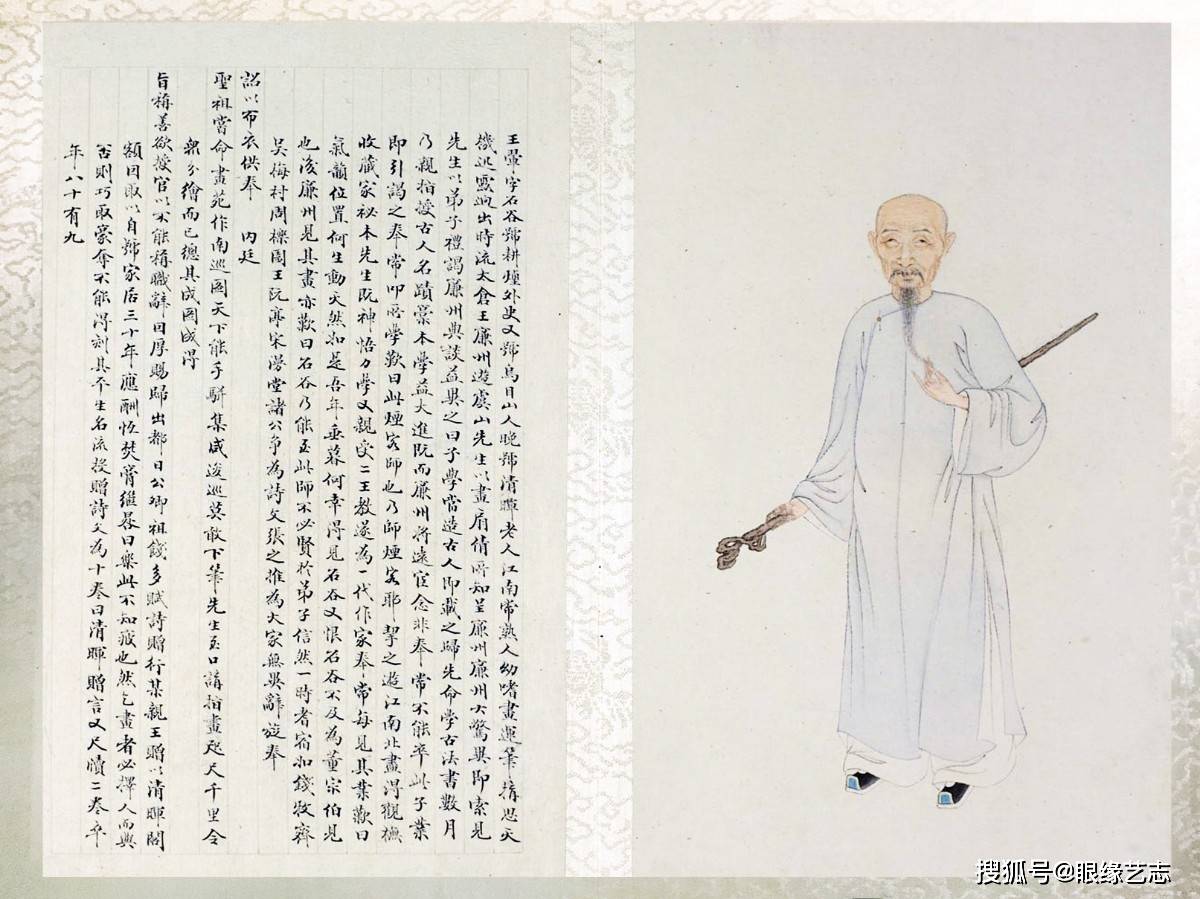 王翬字石谷號耕煙外史又號烏目山人晚號清暉老人江南常熟人幼嗜畫運筆搆思天
機迅露迥出時流太倉王廉州遊虞山先生以畫扇倩所知呈廉州廉州大驚異即索見
先生以弟子禮謁廉州與談益異之曰子學當造古人即載之歸先命學古法書數月
乃親指授古人名蹟稾本學益大進既而廉州將遠宦念非奉常不能卒此子業
即引謁之奉常叩所學歎曰此煙客師也乃師煙客耶挈之遊江南北盡得觀橅
收藏家祕本先生既神悟力學又親受二王教遂為一代作家奉常每見其業歎曰
氣韻位置何生動天然如是吾年垂暮何幸得見石谷又恨石谷不及為董宗伯見
也後廉州見其畫亦歎曰石谷乃能至此師不必賢於弟子信然一時耆宿如錢牧齋
吳梅村周櫟園王阮亭宋漫堂諸公爭為詩文張之推為大家無異辭旋奉
詔以布衣供奉 內廷
聖祖嘗命畫苑作南巡圖天下能手駢集咸逡巡莫敢下筆先生至口講指畫咫尺千里令
眾分繪而已總其成圖成得
旨稱善欲授官以不能稱職辭因厚賜歸出都日公卿祖餞多賦詩贈行某親王贈以清暉閣
額因取以自號家居三十年應酬恆焚膏繼晷曰樂此不知疲也然乞畫者必擇人而與
否則巧取豪奪不能得刻其平生名流投贈詩文為十卷曰清暉贈言又尺牘二卷卒
年八十有九
搜狐号@眼缘艺志